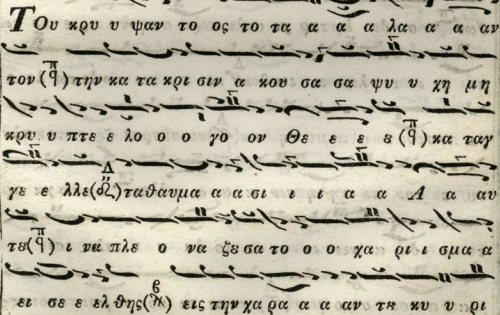 Του κρυ υ ψαν το ος το τα α α α λα α α αν
τον (π ϥ) την κα τα κρι σιν α κου σα σα ψυ υ χη μη
κρυ υ πτε ε λο ο ο γο ον Θε ε ε ε (π ϥ) κα ταγ
γε ε λλε (Δ) τα θαυμα α α σι ι ι α α Α α αυ
τȣ (π ϥ) ι να πλε ο να ζε σα το ο ο χα ρι ι σμα α
ει σε ε ελ θης (β) εις την χα ρα α α αν τȣ κυ υ ρι